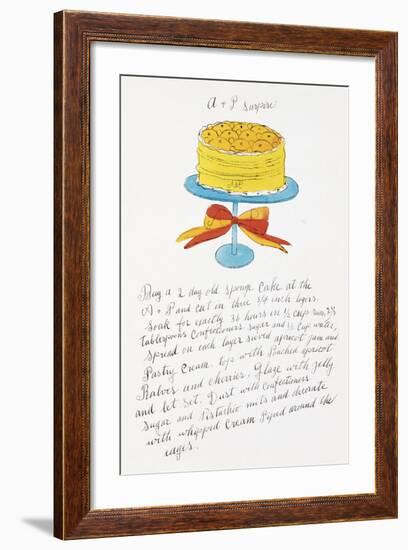 A + P surprise
Buy a 2 day old sponge cake at the
A + P and cut in three 3/4 inch layers.
Soak for exactly 36 hours in 1/2 cup
tablespoons confectioners sugar and 1/2 cup water,
spread on each layer sieved apricot jam and
Pastry Cream, top with Poached apricot
Halves and cherries, Glaze with jelly
and let set. Dust with Confectioners
Sugar and Pistachio nuts and decorate
with whipped Cream Piped around the
edges.